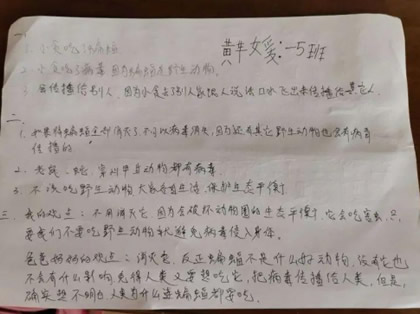 一、
1. 小美吃了蝙蝠
黄梓媛：一5班
2. 小美吃了病毒，因为蝙蝠是野生动物。
3. 会传播给别人，因为小美去别人家跟人说话口水飞出来传播给其它人
二、
1. 如果将蝙蝠全部消灭了，不可以病毒消失，因为还有其它野生动物也会有病毒
传播的
2. 老鼠、蛇、穿山甲等动物都有病毒
3. 不该吃野生动物，大家各自生活，保护生态平衡
三、我的观点：不用消灭它，因为会破坏动物圈的生态平衡，它会吃害虫，只
要我们不要吃野生动物就避免病毒侵入身体。
爸爸妈妈的观点：消灭走，反正蝙蝠不是什么好动物，没有它也
不会有什么影响，免得人类又要想吃它，把病毒传播给人类，但是，
确实想不明白，人类为什么连蝙蝠都要吃。